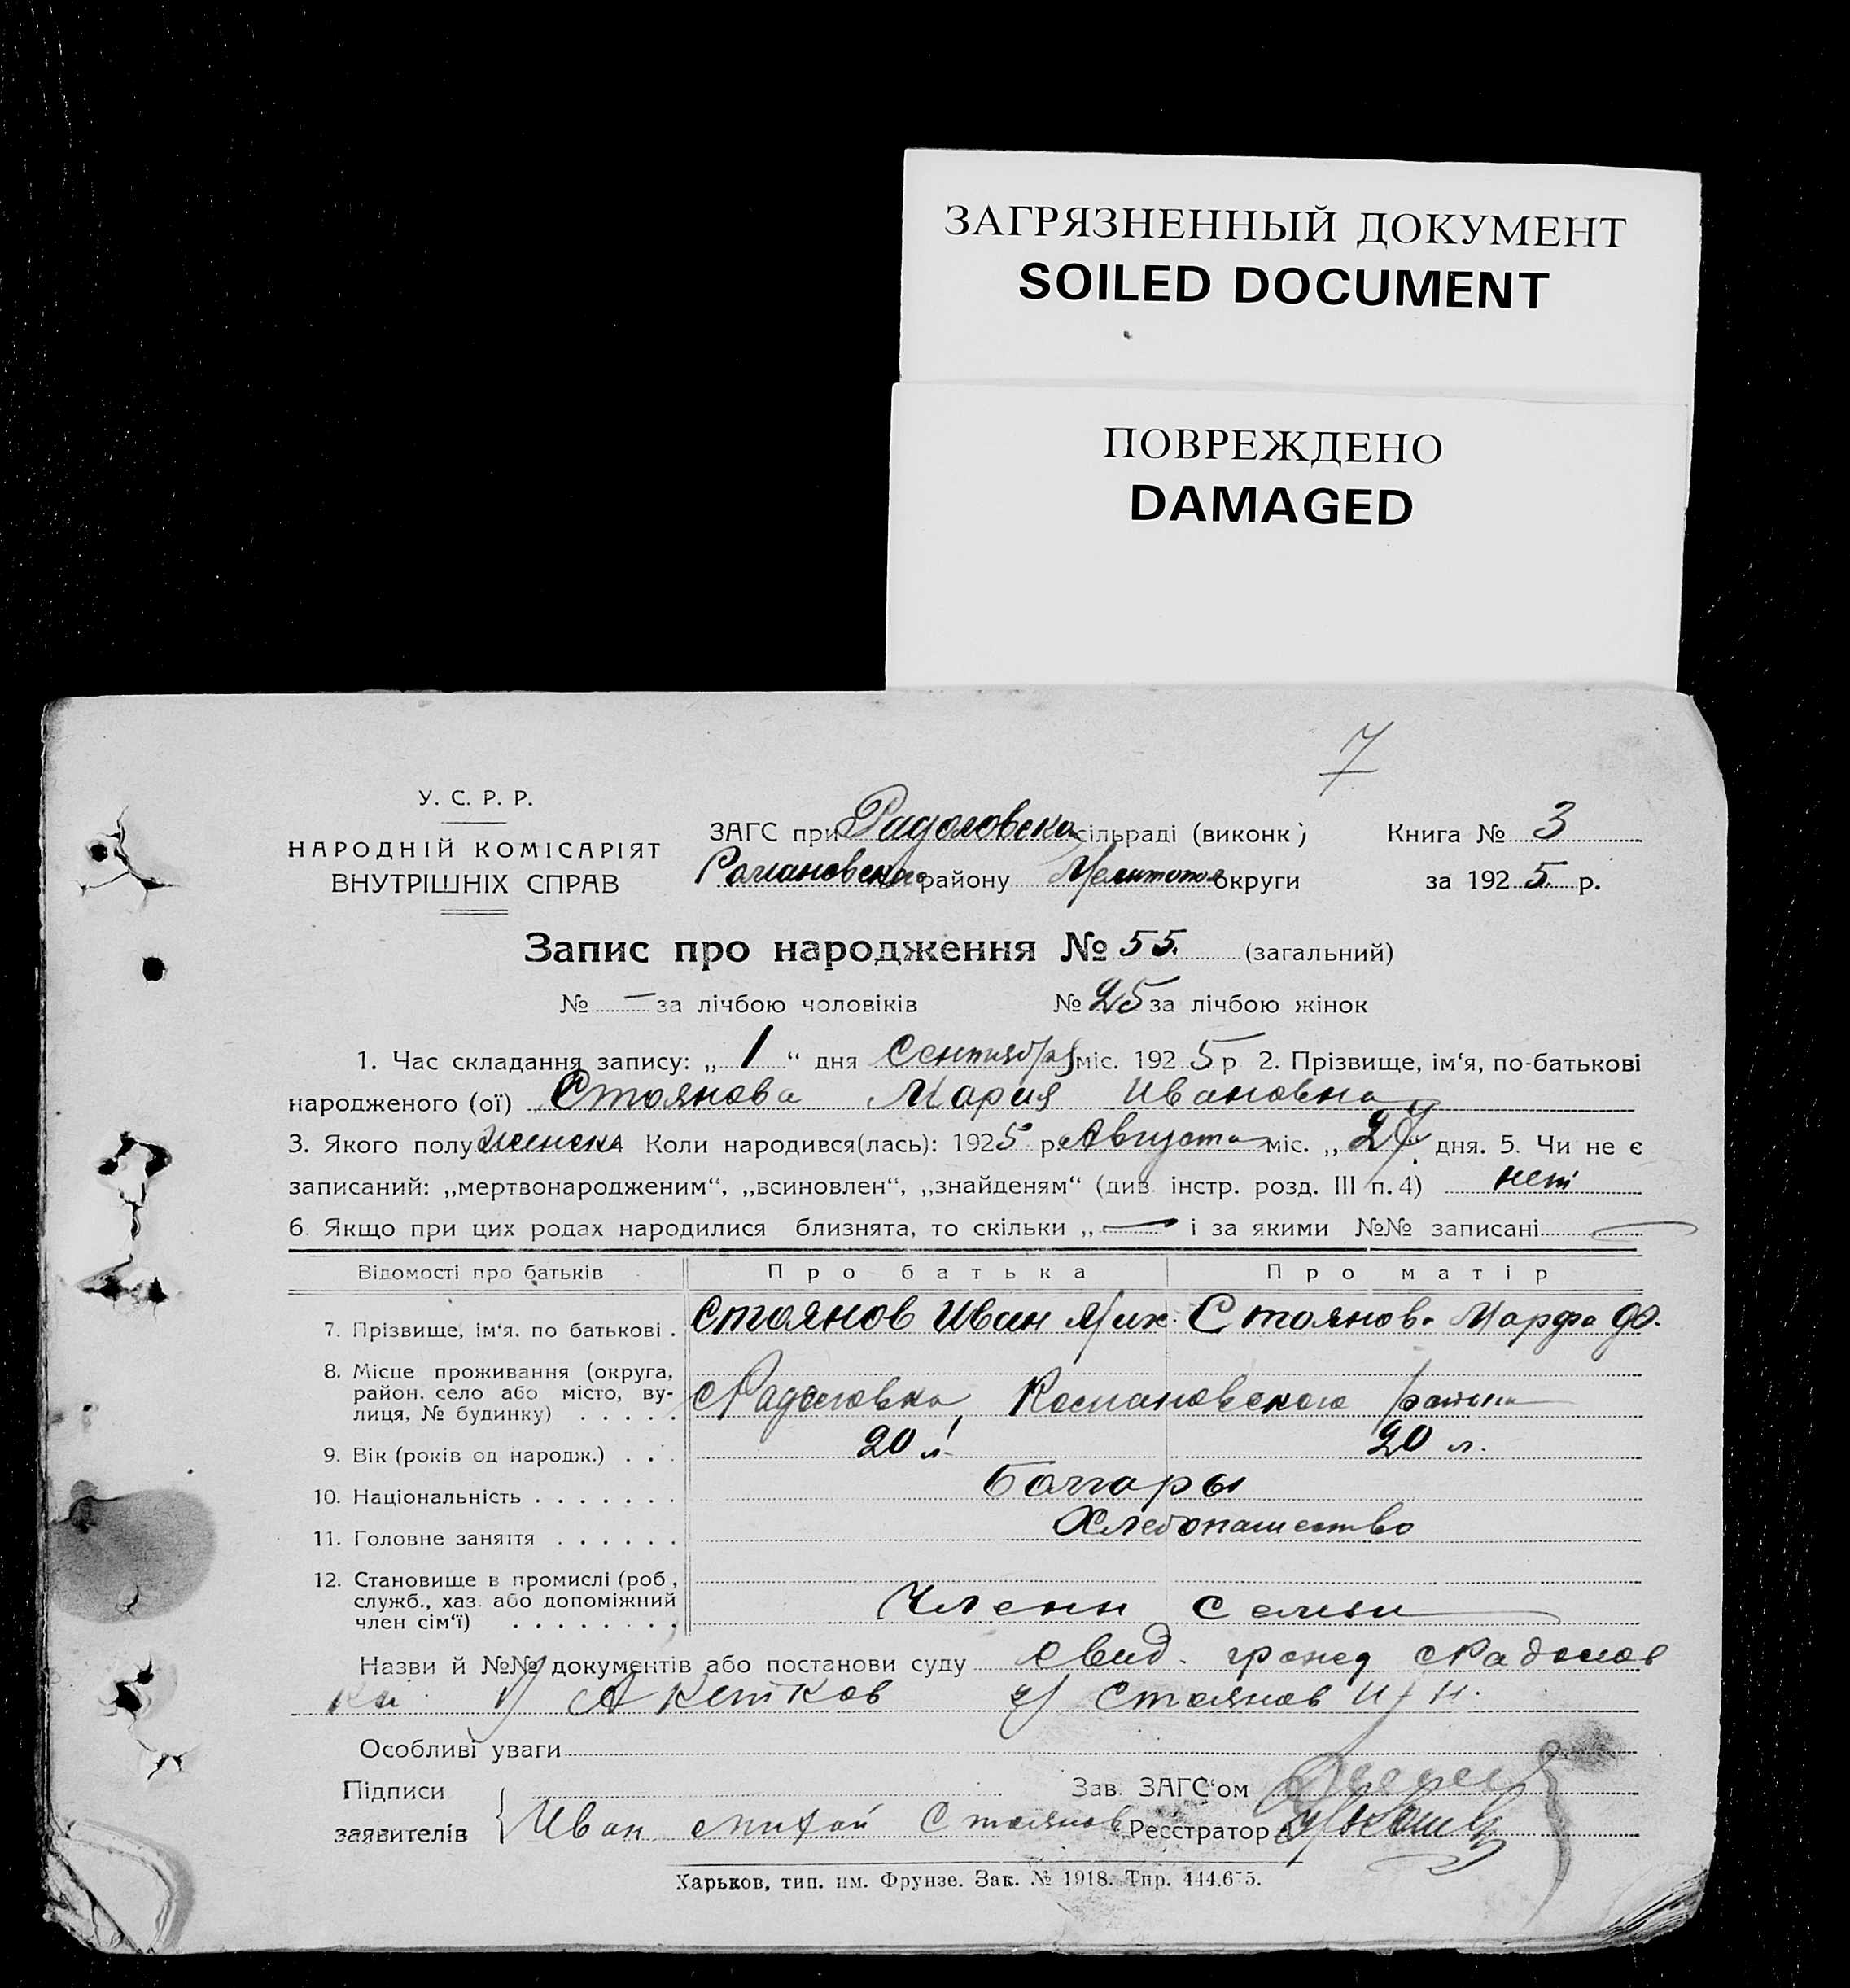 ЗАГРЯЗНЕННЫЙ ДОКУМЕНТ
SOILED DOCUMENT
ПОВРЕЖДЕНО
DAMAGED
7
У. С. Р. Р.
НАРОДНІЙ КОМІСАРІЯТ
ВНУТРІШНІХ СПРАВ
ЗАГС при Радоловска сільраді (виконк)
Книга № 3
Романовско району Мелитопол округи
за 1925 р.
Запис про народження № 55. (загальний)
№ — за лічбою чоловіків № 25 за лічбою жінок
1. Час складання запису: „1“ дня Сентября міс. 1925 р 2. Прізвище, ім‘я, по-батькові
народженого (ої) Стоянова Мария Ивановна
3. Якого полу женск 4 Коли народився(лась): 1925 р. Августа міс. „27“ дня. 5. Чи не є
записаний: „мертвонародженим“, „всиновлен“, „знайденям“ (див. інстр. розд. III п. 4) нет
6. Якщо при цих родах народилися близнята, то скільки „— і за якими №№ записані —
Відомості про батьків Про батька Про матір
7. Прізвище, ім‘я. по батькові . Стоянов Иван Мих. Стоянов. Марфа Ф.
8. Місце проживання (округа,
район. село або місто, ву-
лиця, № будинку) . . . . . с Радоловка, Романовского района
9. Вік (років од народж.) . . . 20 л. 20 л.
10. Національність . . . . . . . Болгары
11. Головне заняття . . . . . . Хлебопашество
12. Становище в промислі (роб,
служб., хаз. або допоміжний
член сім‘ї) . . . . . . . . Члены семьи
Назви й №№ документів або постанови суду Свид. гражд с Радолов
ки 1) А Кетков 2) Стоянов И. Н.
Особливі уваги
Підписи
заявителів Иван Михай Стоянов
Зав. ЗАГС‘ом
Реєстратор
Харьков, тип. им. Фрунзе. Зак. № 1918. Тир. 444.675.